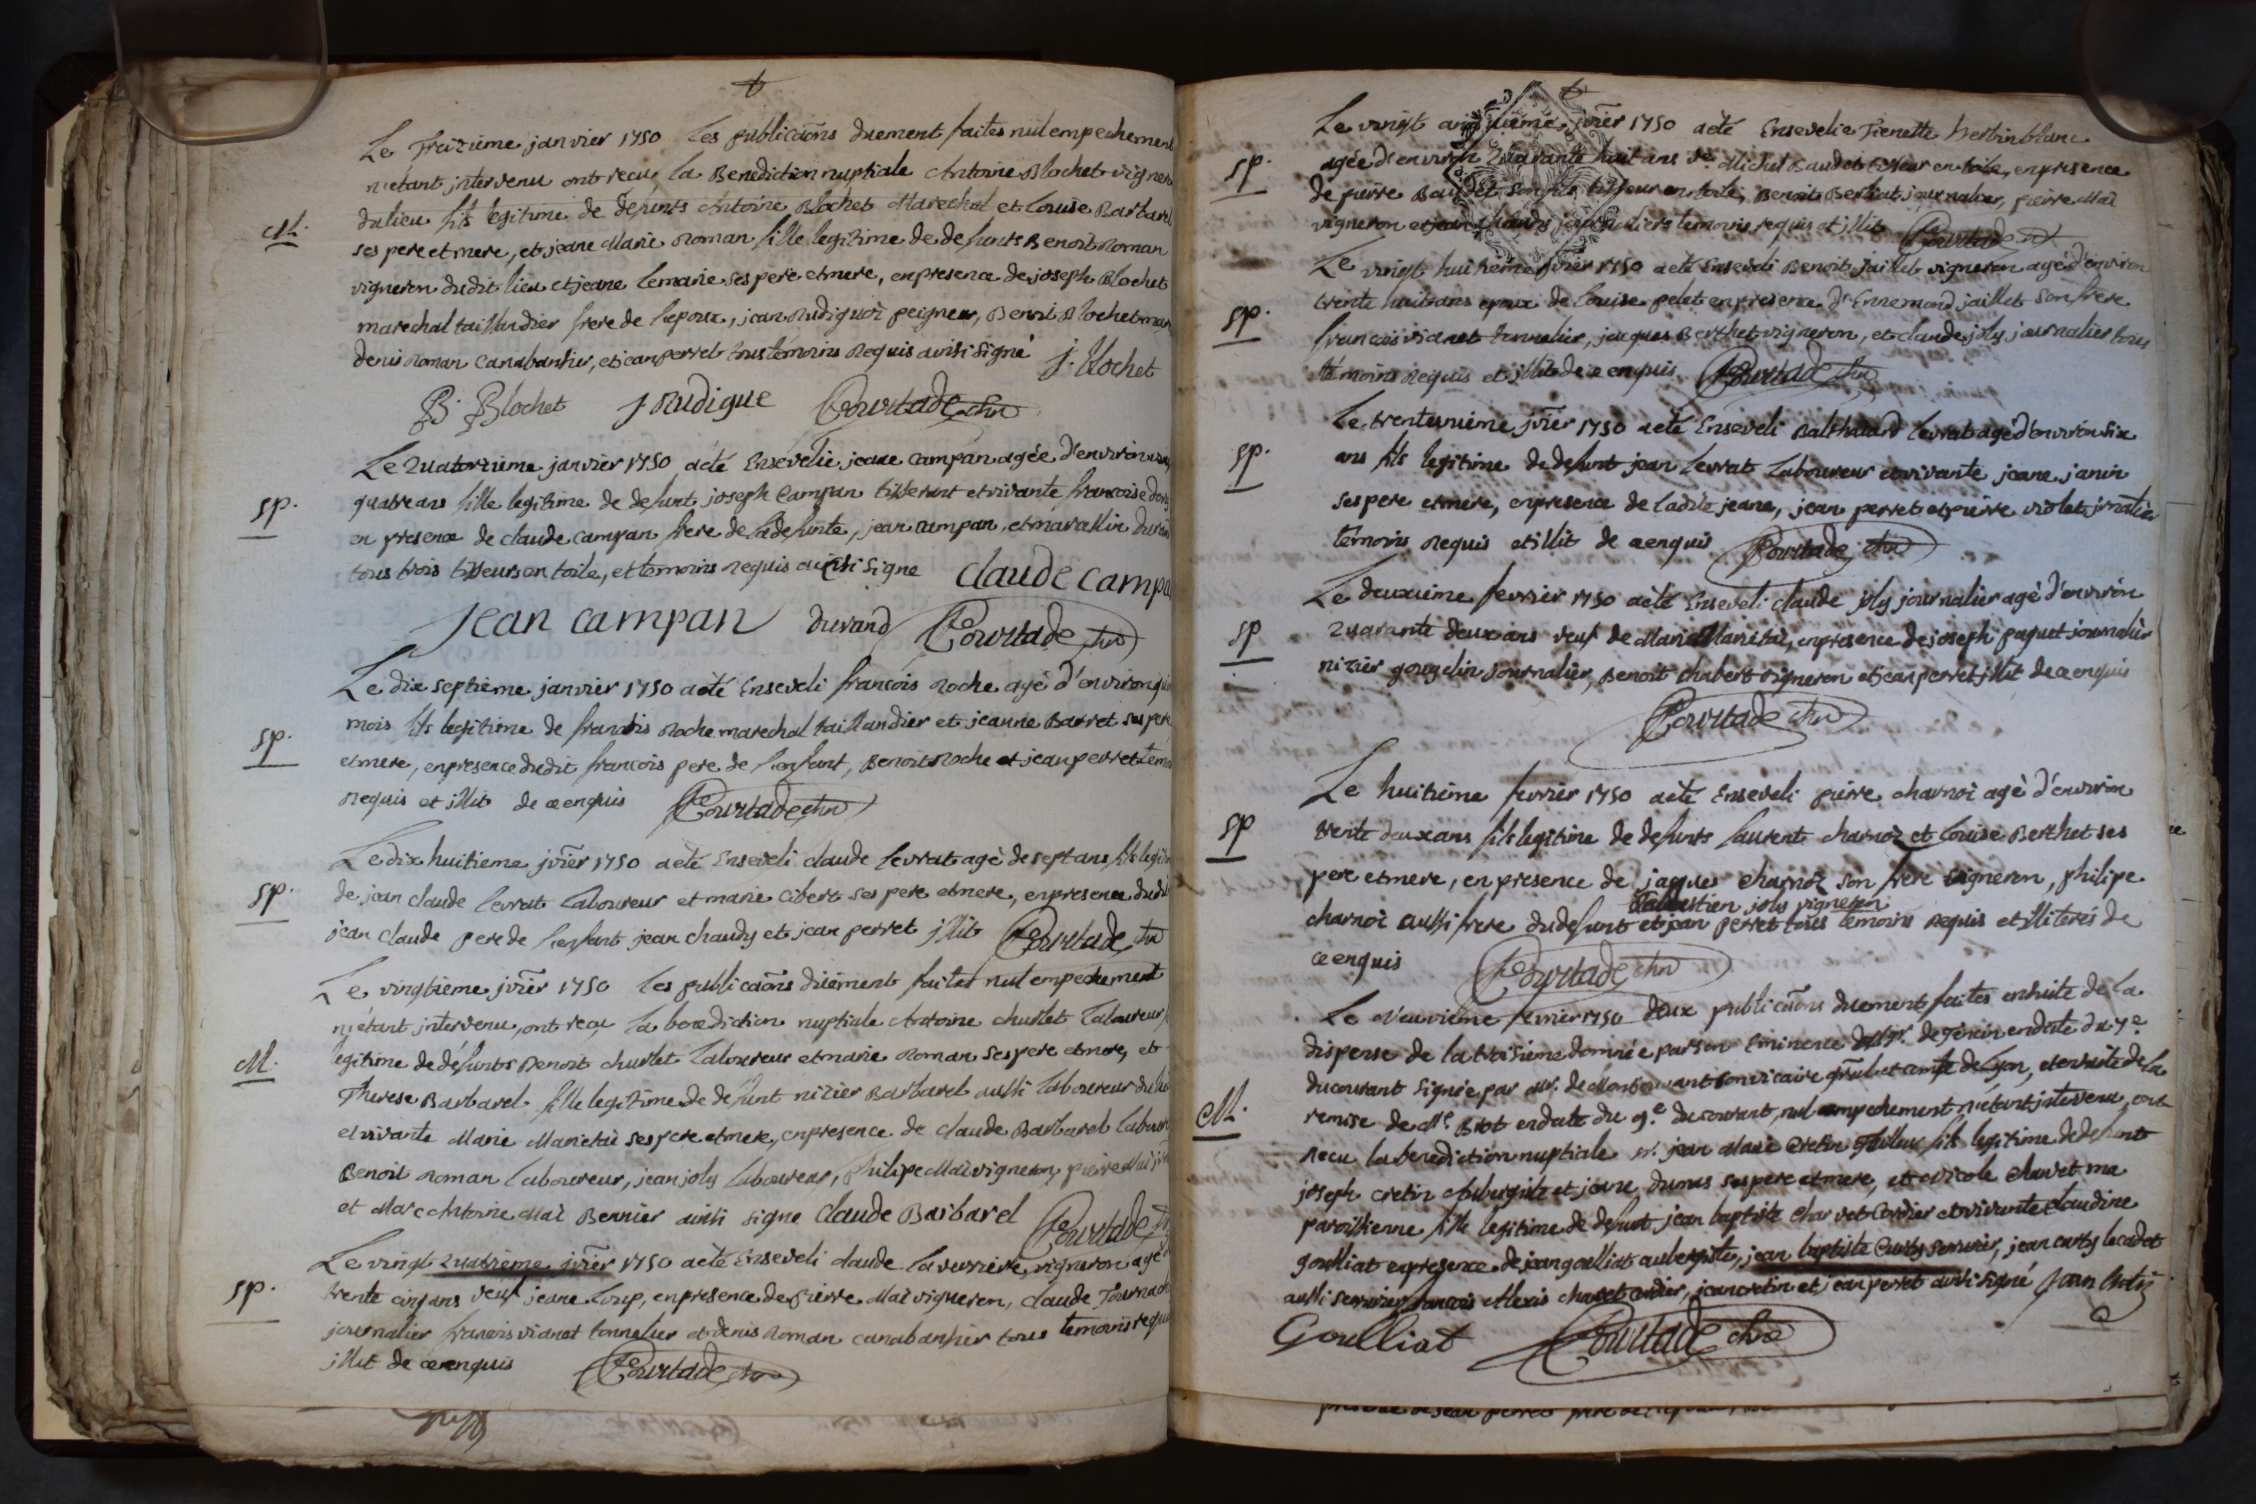 Le Treizieme janvier 1750 les publicaõns duement faites nul empechement
n'etant jntervenu ont recu la Benediction nuptiale Antoine Blochet vigner
dulieu fils legitime de defunts Antoine Blochet Marechal et Louise Barbarel
M.
ses pere et mere, et jeane Marie Roman fille legitime de defunts Benoit Roman
vigneron dudit lieu et jeane lemarie ses pere et mere, en presence de joseph Blochet
marechal taillandier frere de l'epoux, jean Rudigoi peigneur, Benoit Blochet mar
denis Roman Canabassier, et jean perret tous témoins Requis ainsi signé J. Blochet
B. Blochet J Rudigue Courtade
Le Quatorzieme janvier 1750 a eté Ensevelie jeane campan agée d'environ
sp.
quatre ans fille legitime de defunt joseph Campan tisserant et vivante francoise
en presence de claude campan frere de la defunte, jean campan, et marcellin durand
tous trois tisseurs en toile, et temoins requis ainsi signe claude campa
jean campan durand Courtade
Le dix septieme janvier 1750 a eté Enseveli francois Roche agé d'environ
mois fils legitime de francois Roche marechal taillandier et jeanne Barret ses pere
sp.
et mere, en presence dudit francois pere de l'enfant, Benoit Roche et jean perret temo
Requis et jllit de ce enquis Courtade
Le dix huitieme jvier 1750 a eté Enseveli claude levrat agé de sept ans fils legit
sp.
de jean claude levrat laboureur et marie Cibert ses pere et mere, en presence dudit
jean claude pere de l'enfant jean chaudy et jean perret jllit Courtade
Le vingtieme jvier 1750 les publicaõns duement faites nul empechement
n'étant jntervenu, ont recu la benediction nuptiale Antoine churlet laboureur
legitime de défunts Benoit churlet laboureur et marie Roman ses pere et mere, et
M.
Therese Barbarel fille legitime de defunt nizier Barbarel aussi laboureur du lieu
et vivante Marie Manetai ses pere et mere, en presence de claude Barbarel labour
Benoit Roman laboureur, jean joly laboureur, philipe Mai vigneron, pierre Mai
et Marc Antoine Mai Bennier ainsi signe Claude Barbarel Courtade
Le vingt Quatrieme jvier 1750 a eté Enseveli claude laverriere, vigneron agé
sp.
trente cinq ans veuf jeane loup, en presence de pierre Mai vigneron, claude Tournac
journalier francois vianet tonnelier et denis Roman canabassier tous temoins requ
jllit de ce enquis Courtade
Le vingt cinquieme jvier 1750 a eté Ensevelie Pierrette herbin blanc
sp.
agée d'environ Quarante huit ans ve Michel Baudet tisseur en toile, en presence
de pierre Baudet son fils tisseur en toile, Benoit Berliat journalier, pierre Mai
vigneron et jean chaudy journaliers temoins requis et jllits Courtade
Le vingt huitieme jvier 1750 a eté Enseveli Benoit jaillet vigneron agé d'environ
sp.
trente huit ans epoux de louise pelet en presence d'Ennemond jaillet son frere
francois vianet tonnelier, jacques Berthet vigneron, et claude joly journalier tous
témoins Requis et jllits de ce enquis Courtade
Le trente unieme jvier 1750 a eté Enseveli Balthazard levrat agé d'environ six
sp.
ans fils legitime de defunt jean levrat laboureur et vivante jeane janin
ses pere et mere, en presence de ladite jeane, jean perret et pierre violet jrnalier
témoins Requis et illit de ce enquis Courtade
Le deuxieme fevrier 1750 a eté Enseveli claude joly journalier agé d'environ
sp
Quarante deux ans veuf de Marie Manetai, en presence de joseph paquet journalier
nizier gougelin journalier, Benoit chabert vigneron et jean perret jllit de ce enquis
Courtade
Le huitieme fevrier 1750 a eté Enseveli pierre charnoi agé d'environ
sp
trente deux ans fils legitime de defunts laurent charnoz et louise Berthet ses
pere et mere, en presence de jaques charnoz son frere vigneron, philipe
sebastien joly vigneron
charnoi aussi frere du defunt et jean perret tous temoins requis et illiterés de
ce enquis Courtade
Le Neuvieme fevrier 1750 deux publicaõns duement faites ensuite de la
dispense de la troisieme donnée par son Eminence de tencin en date du 7e
ducourant signée par Mr. de Montjouvant son vicaire gñral et comte de lyon, et ensuite de la
M.
remise de Mr. Brot en date du 9e. du courant, nul empechement n'etant jntervenu, ont
recu la benediction nuptiale sr. jean Marie Cretin fils legitime de defunt
joseph cretin Aubergiste et jeane dumas ses pere et mere, et Nicole charvet ma
paroissienne fille legitime de defunt jean baptiste charvet Cordier et vivante claudine
goulliat en presence de jean goulliat aubergiste, jean baptiste Curty serrurier, jean curty le cadet
aussi serrurier, francois Alexis charvet cordier, jean cretin et jean perret ainsi signé Jean Curty
Goulliat Courtade